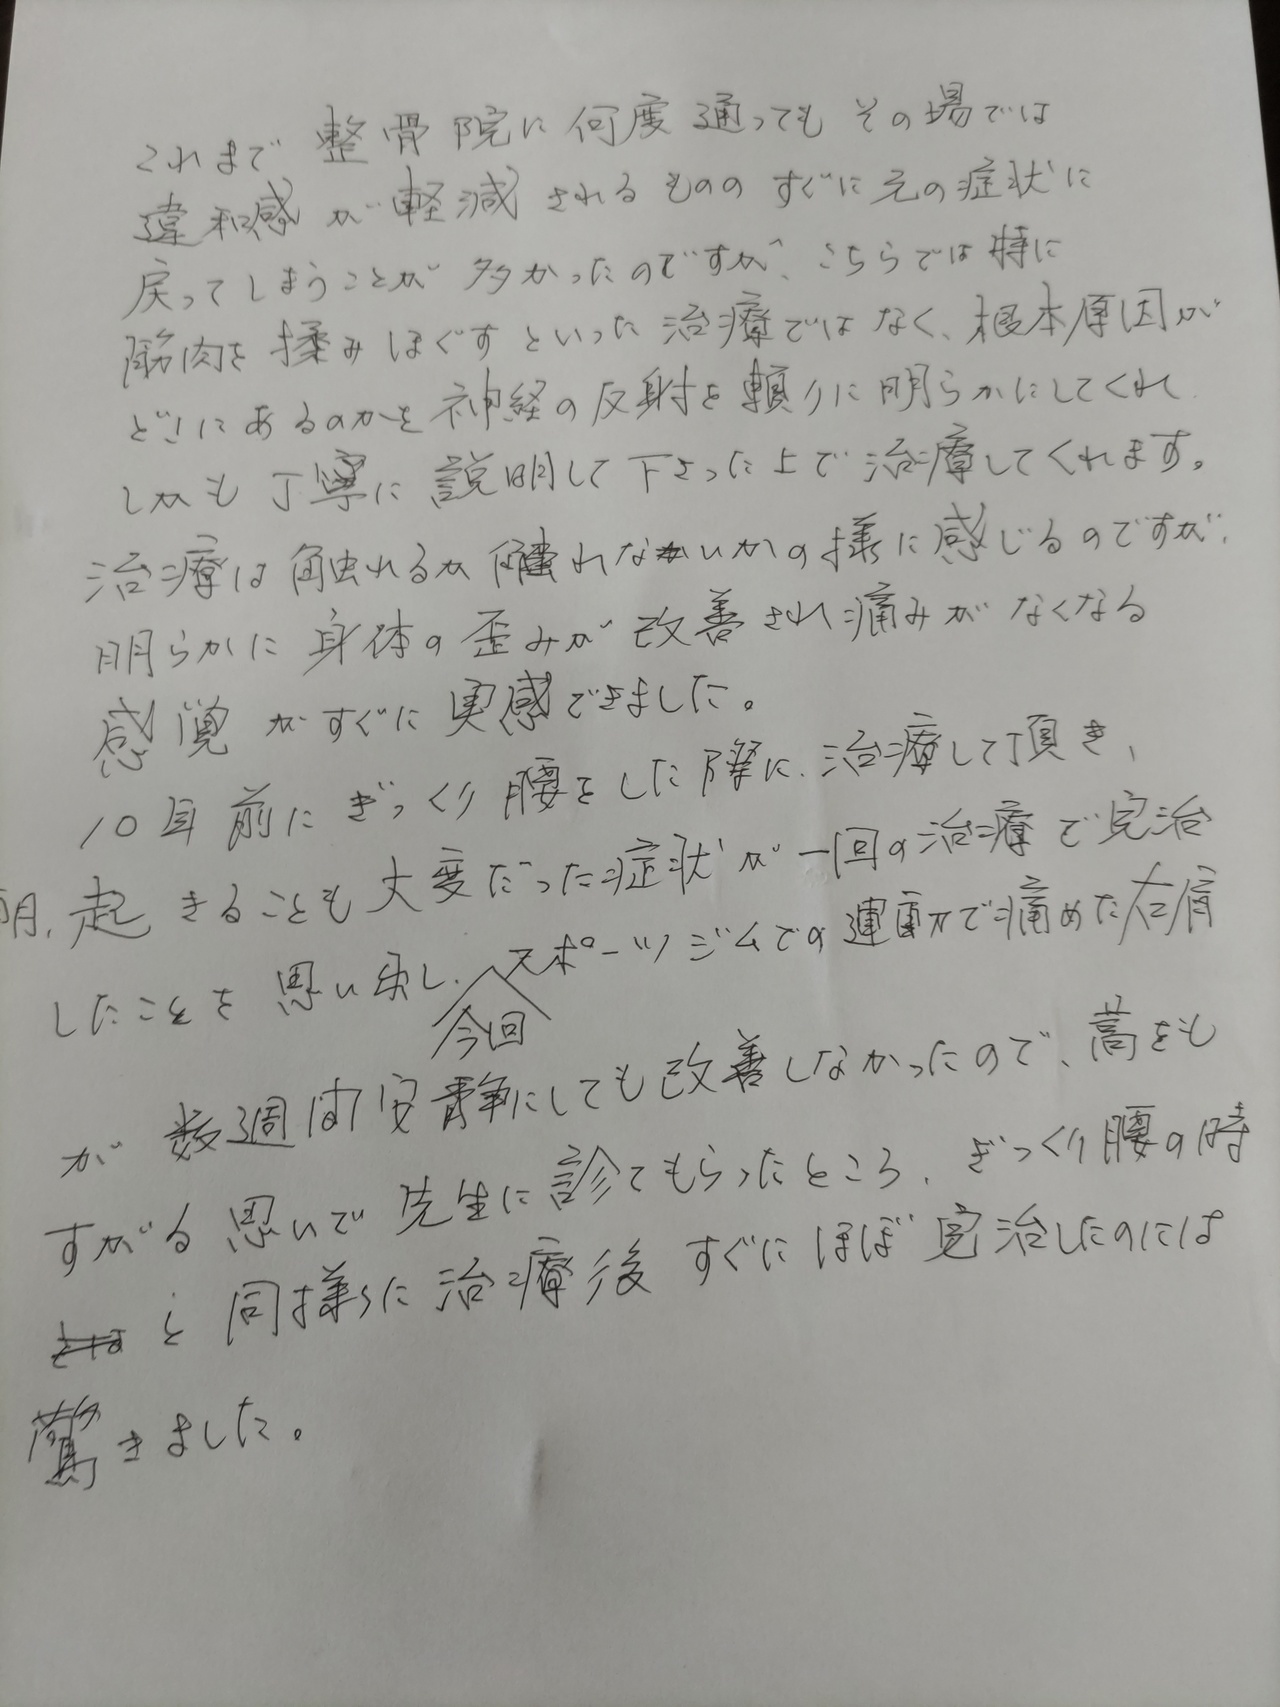 これまで 整骨院に 何度 通っても その場では
違和感が 軽減 されるものの すぐに元の症状に
戻ってしまうことが 多かったのですが、こちらでは特に
筋肉を 揉みほぐすといった 治療ではなく、根本原因が
どこにあるのかを神経の反射を頼りに明らかにしてくれ、
しかも 丁寧に説明して下さった上で治療してくれます。
治療は 触れるか 触れないかの様に感じるのですが、
明らかに身体の歪みが改善され痛みがなくなる
感覚がすぐに実感できました。
10年前にぎっくり腰をした際に、治療して頂き、
朝、起きることも大変だった症状が一回の治療で完治
したことを思い出し、今回スポーツジムでの運動で痛めた右肩
が数週間安静にしても改善しなかったので、藁をも
すがる思いで先生に診てもらったところ、ぎっくり腰の時
と同様に治療後すぐにほぼ完治したのには
驚きました。